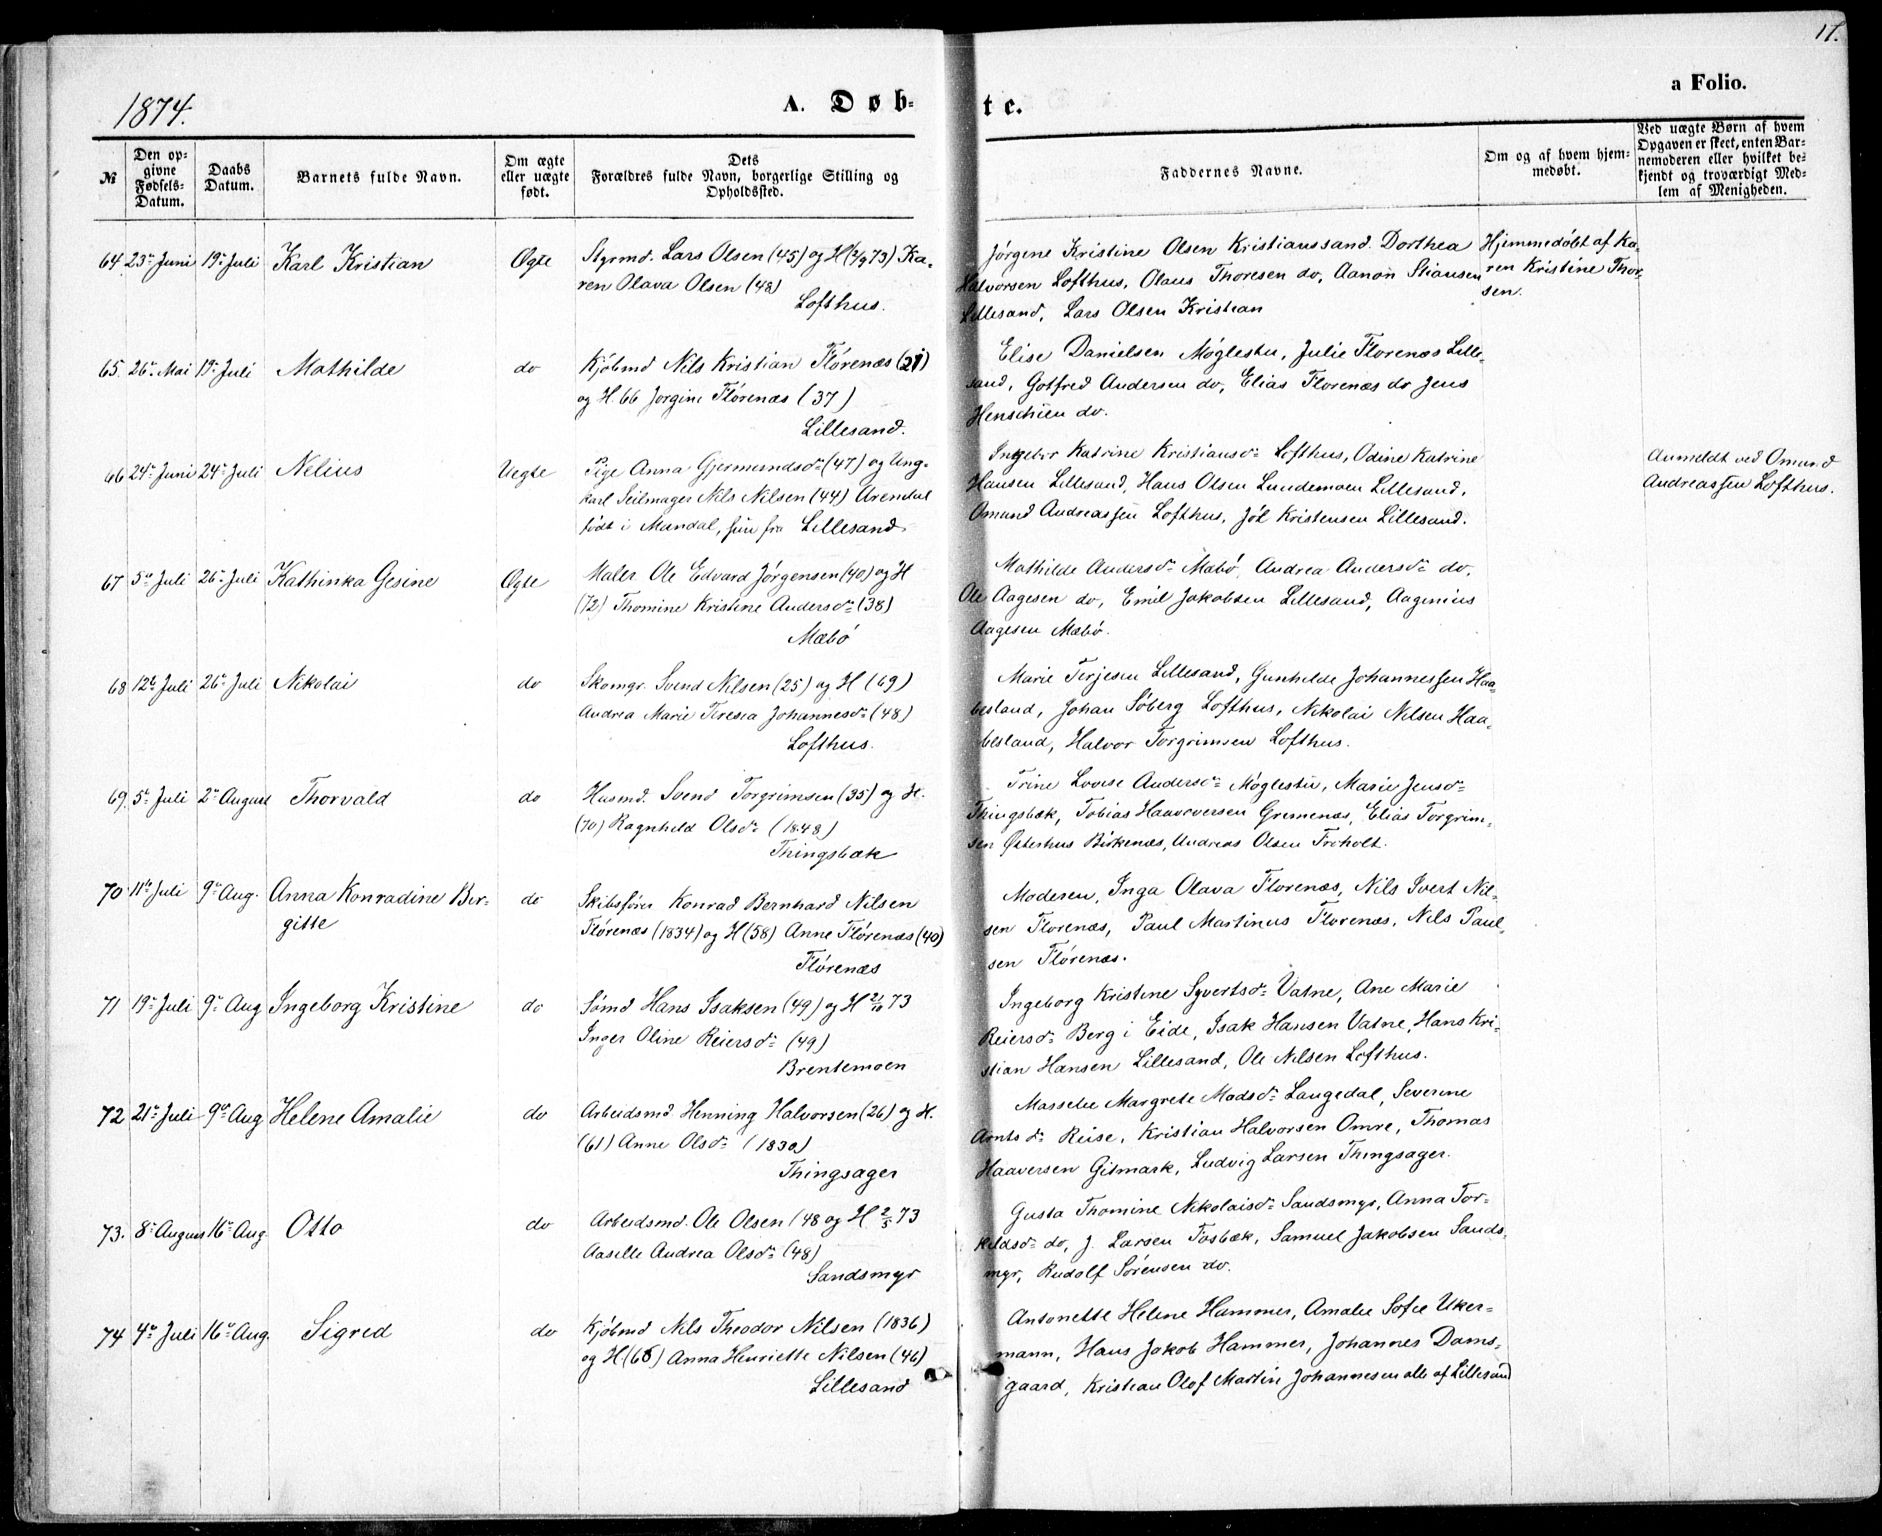 17.
1874.
A. Døb-
te.
a Folio.
№
Den op-
givne
Fødsels-
Datum.
Daabs
Datum.
Barnets fulde Navn.
Om ægte
eller uægte
født.
Dets
Forældres fulde Navn, borgerlige Stilling og
Opholdssted.
Faddernes Navne.
Om og af hvem hjem-
medøbt.
Ved uægte Børn af hvem
Opgaven er skeet, enten Bar-
nemoderen eller hvilket be-
kjendt og troværdigt Med-
lem af Menigheden.
64 23de Juni 19de Juli Karl Kristian Ægte Styrmd. Lars Olsen (45) og H (2/9 73) Ka-
ren Olava Olsen (48)
Lofthus.
Jørgene Kristine Olsen Kristianssand. Dorthea
Halvorsen Lofthus, Olaus Thoresen do, Aanon Stiansen
Lillesand, Lars Olsen Kristian
Hjemmedøbt af Ka-
ren Kristine Thor-
sen.
65. 26de Mai 19de Juli Mathilde do Kjøbmd Nils Kristian Flørenæs (21)
og H. 66 Jorgine Flørenæs (37)
Lillesand.
Elise Danielsen Møglestu, Julie Florenæs Lille-
sand, Gotfred Andersen do, Elias Florenæs do Jens
Henschien do.
66 24de Juni 24de Juli Nelius Uegte Pige Anna Gjermundsdr (47) og Ung-
karl Seilmager Nils Nilsen (44) Arendal
født i Mandal, hun fra Lillesand
Ingebor Katrine Kristiansdr Lofthus, Odine Katrine
Hansen Lillesand, Hans Olsen Lundemoen Lillesand,
Omund Andreassen Lofthus, Jøl Kristensen Lillesand.
Anmeldt ved Omund
Andreassen Lofthus.
67 5te Juli 26de Juli Kathinka Gesine Ægte Maler Ole Edvard Jørgensen (40) og H
(72) Thomine Kristine Andersdr (38)
Mæbø
Mathilde Andersdr Mabø, Andrea Andersdr do,
Ole Aagesen do, Emil Jakobsen Lillesand, Aagenius
Aagesen Mæbø.
68 12te Juli 26de Juli Nikolai do Skomgr. Svend Nilsen (25) og H (69)
Andrea Marie Teresia Johannesdr (48)
Lofthus.
Marie Terjesen Lillesand, Gunhilde Johannessen Haa-
besland, Johan Søberg Lofthus, Nikolai Nilsen Haa-
besland, Halvor Torgrimsen Lofthus.
69. 5te Juli 2den August Thorvald do Husmd. Svend Torgrimsen (35) og H.
(70) Ragnhild Olsdr (1848)
Thingsbæk
Trine Lovise Andersdr Møglestu, Marie Jensdr
Thingsbæk, Tobias Haaverersen Gremenæs, Elias Torgrim-
sen Østerhus Birkenæs, Andreas Olsen Froholt.
70 11te Juli 9de Aug. Anna Konradine Bir-
gitte do Skibsfører Konrad Bernhard Nilsen
Flørenæs (1834) og H (58) Anne Flørenæs (40)
Flørenæs
Moderen, Inga Olava Florenæs, Nils Ivert Nil-
sen Florenæs, Paul Martinus Florenæs, Nils Paul-
sen Flørenæs.
71 19de Juli 9de Aug Ingeborg Kristine do Sømd Hans Isaksen (49) og H 21/10 73
Inger Oline Reiersdr (49)
Brentemoen
Ingeborg Kristine Syvertsdr Vatne, Ane Marie
Reiersdr Berg i Eide, Isak Hansen Vatne, Hans Kri-
stian Hansen Lillesand, Ole Nilsen Lofthus.
72 21de Juli 9de Aug Helene Amalie do Arbeidsmd. Henning Halvorsen (26) og H.
(61) Anne Olsdr (1830)
Thingsager
Masselie Margrete Madsdr Langedal, Severine
Arntsdr Reise, Kristian Halvorsen Omre, Thomas
Haaversen Gitmark, Ludvig Larsen Thingsager.
73. 8de August 16de Aug. Otto do Arbeidsmd. Ole Olsen (48 og H 2/5 73
Aaselle Andrea Olsdr (48)
Sandsmyr
Gusta Thomine Nikolaisdr Sandsmyr, Anna Tor-
kildsdr do, J. Larsen Fosbæk, Samuel Jakobsen Sands-
myr, Rudolf Sørensen do.
74 4de Juli 16de Aug. Sigred do Kjøbmd Nils Theodor Nilsen (1836)
og H (68) Anna Henriette Nilsen (46)
Lillesand
Antonette Helene Hammer, Amalie Sofie Uker-
mann, Hans Jakob Hammer, Johannes Dams-
gaard, Kristian Olof Martin Johannesen alle af Lillesand